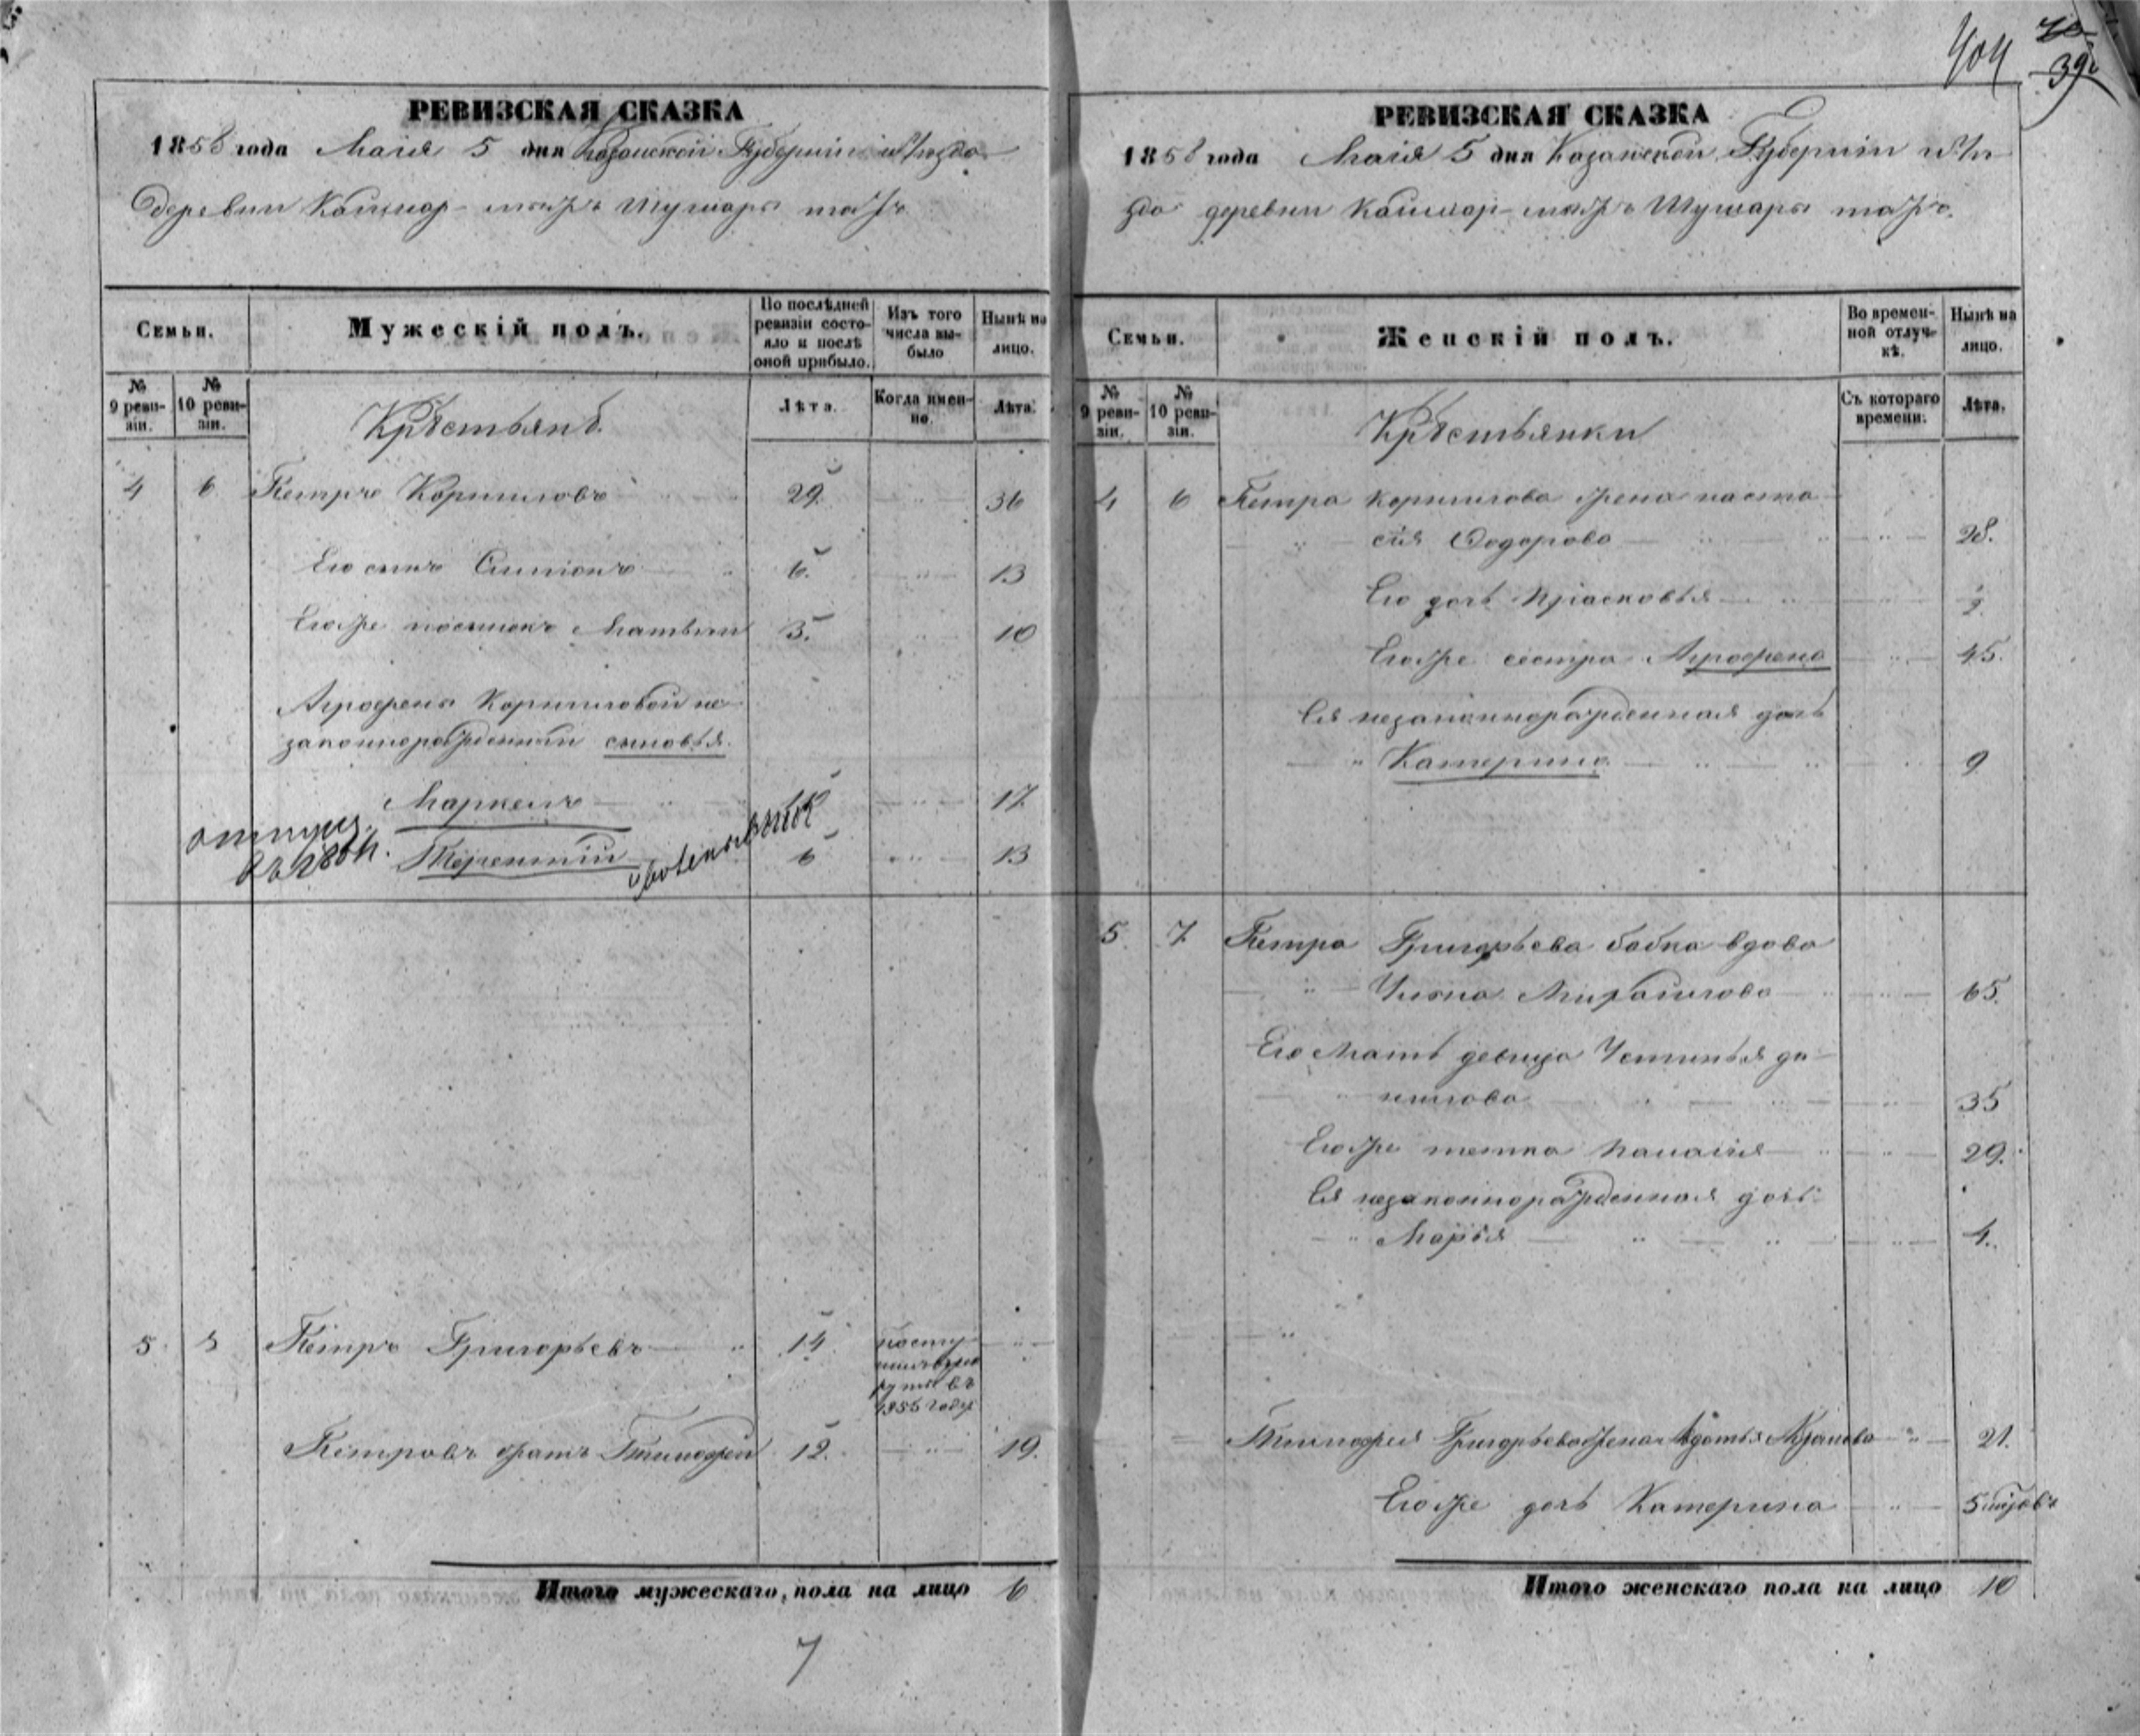 404
39
РЕВИЗСКАЯ СКАЗКА
1858 года Маия 5 дня Казанской Губернии и Уѣзда
деревни Кайнар тожъ Шушары тожъ
Семьи.
Мужескій полъ.
По послѣдней ревизіи состояло и послѣ оной прибыло.
Изъ того числа выбыло
Нынѣ на лицо.
№ 9 ревизіи.
№ 10 ревизіи.
Крестьянѣ
Лѣта.
Когда именно.
Лѣта.
4 6 Петръ Корниловъ 29. 36
Его сынъ Симионъ 6. 13
Его же пасынокъ Матвѣй 3. 10
Агрофены Корниловой не-
законнорожденныи сыновья
Маркелъ 10 17
Терентий 6 13
5 Петръ Григорьевъ 14 посту-
въ
1855 году
Петровъ братъ Тимофей 12. 19.
Итого мужескаго пола на лицо 6
7
РЕВИЗСКАЯ СКАЗКА
1858 года Маия 5 дня Казанской Губернии и Уѣ-
зда деревни Кайнар тожъ Шушары тожъ.
Семьи.
Женскій полъ.
Во временной отлучкѣ.
Нынѣ на лицо.
№ 9 ревизіи.
№ 10 ревизіи.
Крестьянки
Съ котораго времени.
Лѣта.
4 6 Петра Корнилова жена наста-
сия Федорова 28.
Его дочь Прасковья ½
Его же сестра Агрофена 45.
Ея незаконнорожденная дочь
Катерина 9
5. 7 Петра Григорьева бабка вдова
Михайлова 65.
Его мать девица Устинья да-
нилова 35
Его же тетка 29.
Ея незаконнорожденная дочь
Марья 4.
Тимофея Григорьева жена 21.
Его же дочь Катерина 5
Итого женскаго пола на лицо 10